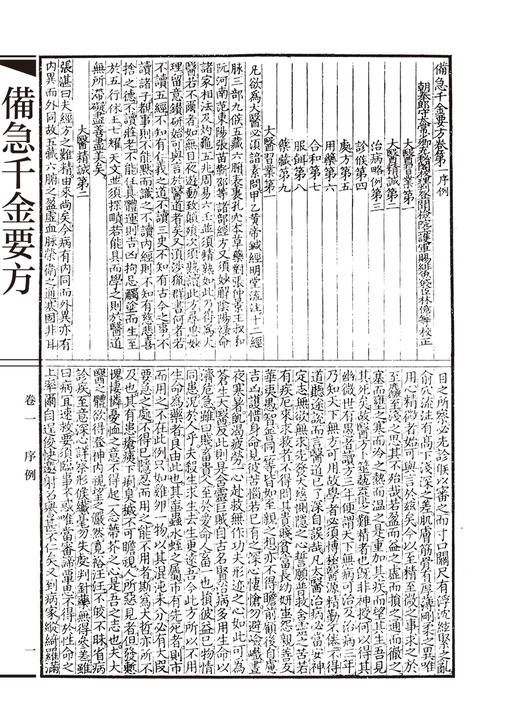 備急千金要方卷第一 序例
朝奉郎守太常少卿充秘閣校理判登聞檢院上護軍賜緋魚袋臣林億等校正
大醫習業第一
大醫精誠第二
治病略例第三
診候第四
處方第五
用藥第六
合和第七
服餌第八
藥藏第九
大醫習業第一
凡欲為大醫必須諳素問甲乙黃帝鍼經明堂流注十二經
脉三部九候五藏六腑表裏孔穴本草藥對張仲景王叔和
阮河南范東陽張苗靳邵等諸部經方又須妙解陰陽祿命
諸家相法及灼龜五兆周易六壬並須精熟如此乃得為大
醫若不爾者如無目夜遊動致顛殞次須熟讀此方尋思妙
理留意鑽研始可與言於醫道者矣又須涉獵群書何者若
不讀五經不知有仁義之道不讀三史不知有古今之事不
讀諸子覩事則不能默而識之不讀內經則不知有慈悲喜
捨之德不讀莊老不能任真體運則吉凶拘忌觸塗而生至
於五行休王七耀天文並須探賾若能具而學之則於醫道
無所滯礙盡善盡美矣
大醫精誠第二
張湛曰夫經方之難精由來尚矣今病有內同而外異亦有
內異而外同故五藏六腑之盈虛血脉榮衛之通塞固非耳
目之所察必先診候以審之而寸口關尺有浮沈絃緊之亂
俞穴流注有高下淺深之差肌膚筋骨有厚薄剛柔之異唯
用心精微者始可與言於茲矣今以至精至微之事求之於
至麤至淺之思其不殆哉若盈而益之虛而損之通而徹之
塞而壅之寒而冷之熱而溫之是重加其疾而望其生吾見
其死矣故醫方卜筮藝能之難精者也既非神授何以得其
幽微世有愚者讀方三年便謂天下無病可治及治病三年
乃知天下無方可用故學者必須博極醫源精勤不倦不得
道聽途說而言醫道已了深自誤哉凡大醫治病必當安神
定志無欲無求先發大慈惻隱之心誓願普救含靈之苦若
有疾厄來求救者不得問其貴賤貧富長幼妍蚩怨親善友
華夷愚智普同一等皆如至親之想亦不得瞻前顧後自慮
吉凶護惜身命見彼苦惱若己有之深心悽愴勿避嶮巇晝
夜寒暑飢渴疲勞一心赴救無作功夫形迹之心如此可為
蒼生大醫反此則是含靈巨賊自古名賢治病多用生命以
濟危急雖曰賤畜貴人至於愛命人畜一也損彼益己物情
同患況於人乎夫殺生求生去生更遠吾今此方所以不用
生命為藥者良由此也其虻蟲水蛭之屬市有先死者則市
而用之不在此例只如雞卵一物以其混沌未分必有大段
要急之處不得已隱忍而用之能不用者斯為大哲亦所不
及也其有患瘡痍下痢臭穢不可瞻視人所惡見者但發慙
愧悽憐憂恤之意不得起一念蔕芥之心是吾之志也夫大
醫之體欲得澄神內視望之儼然寬裕汪汪不皎不昧省病
診疾至意深心詳察形候纖毫勿失處判針藥無得參差雖
曰病宜速救要須臨事不惑唯當審諦覃思不得於性命之
上率爾自逞俊快邀射名譽甚不仁矣又到病家縱綺羅滿
備急千金要方
卷一 序例
一